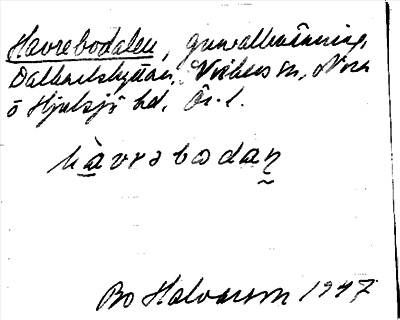 Havrebodalen, gruvallmänning,
Dalkarlshyttan, Vikers sn, Nora
o Hjulsjö bd, Ör. l.
hàvrəbodaṇ
Bo Halvarson 1947